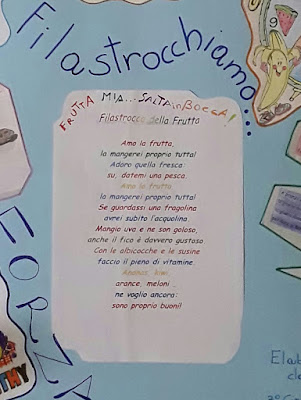 Filastrocchiamo...
FRUTTA MIA... SALTA in BOCCA!
Filastrocca della Frutta
Amo la frutta,
la mangerei proprio tutta!
Adoro quella fresca
su, datemi una pesca.
Amo la frutta
la mangerei proprio tutta!
Se guardassi una fragolina
avrei subito l'acquolina
Mangio uva e ne son goloso,
anche il fico è davvero gustoso
Con le albicocche e le susine
faccio il pieno di vitamine.
Ananas, kiwi,
arance, meloni ..
ne voglio ancora:
sono proprio buoni!
FORZA